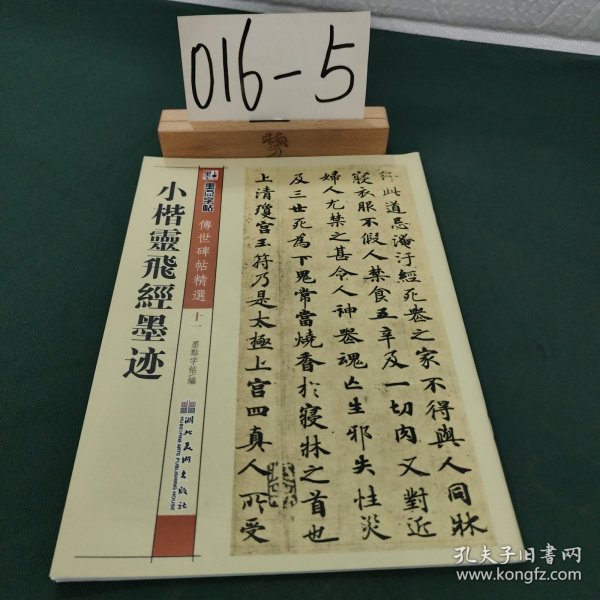 016-5
墨点字帖
傳世碑帖精選
十一
墨點字帖編
小楷靈飛經墨迹
湖北美术出版社
HUBEI FINE ARTS PUBLISHING HOUSE
行此道忌淹汙經死喪之家不得與人同牀
寢衣服不假人禁食五辛及一切肉又對近
婦人尤禁之甚令人神喪魂亡生邪失性災
及三世死為下鬼常當燒香於寢牀之首也
上清瓊宮玉符乃是太極上宮四真人所受
孔夫子旧书网
www.kongfz.com